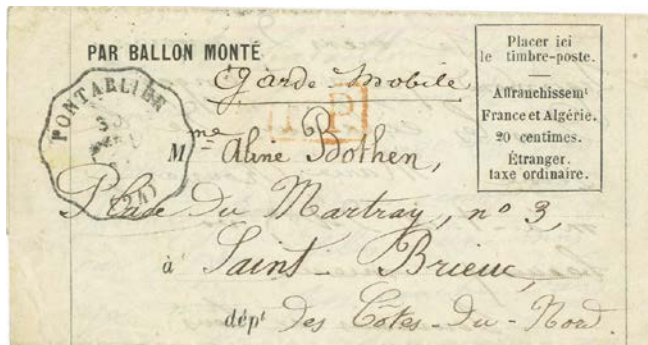 PAR BALLON MONTÉ
Garde Mobile
Placer ici
le timbre-poste.
Affranchissemt
France et Algérie.
20 centimes.
Étranger.
taxe ordinaire.
PONTARLIER
(24)
P.P
Mme Aline Bothen,
Place Du Martray, nº 3,
à Saint-Brieuc,
dépt des Côtes-Du-Nord.